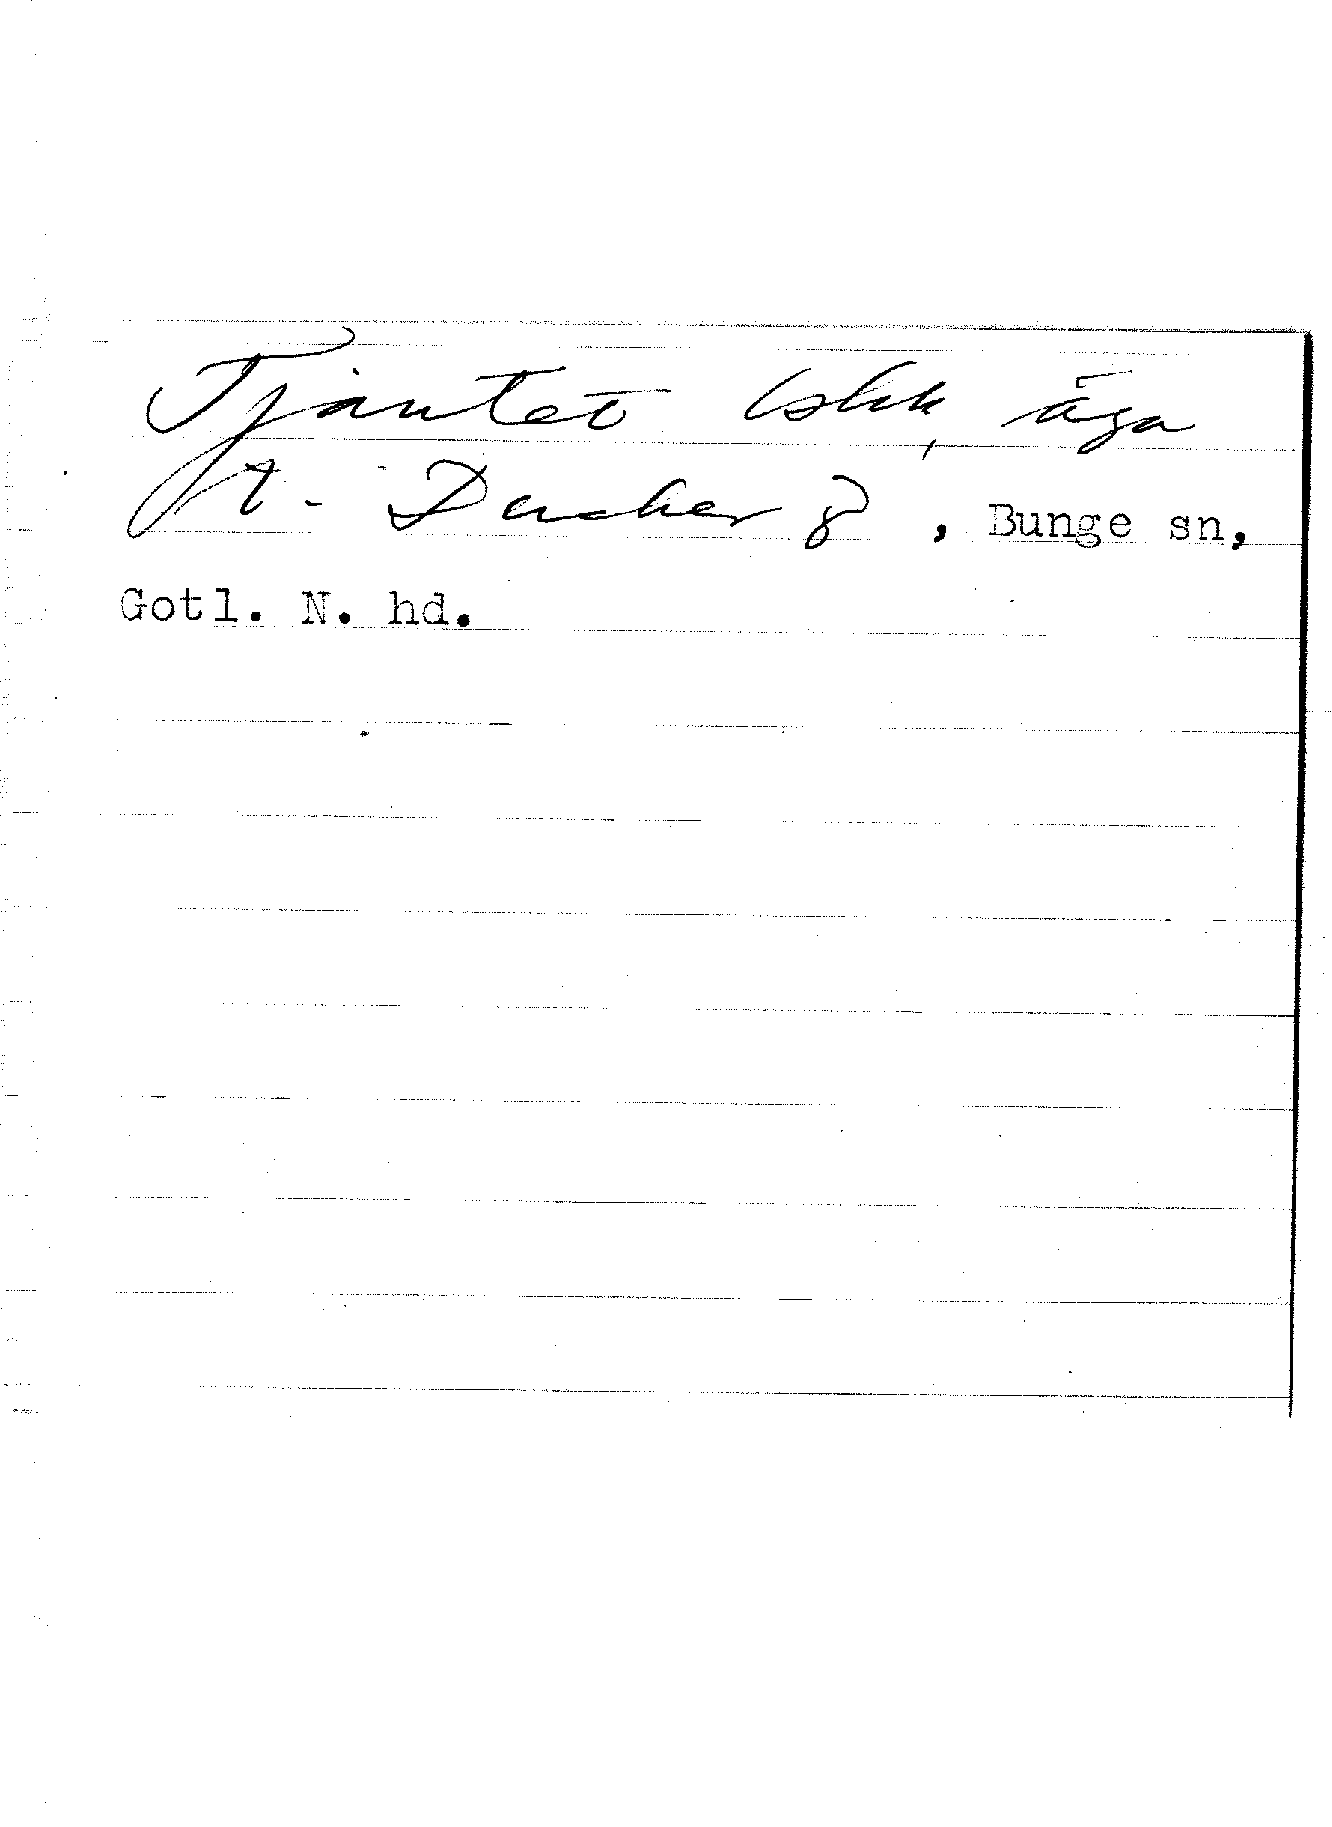 Tjäutet (skk, äga
t. Ducker 8, Bunge sn,
Gotl. N. hd.